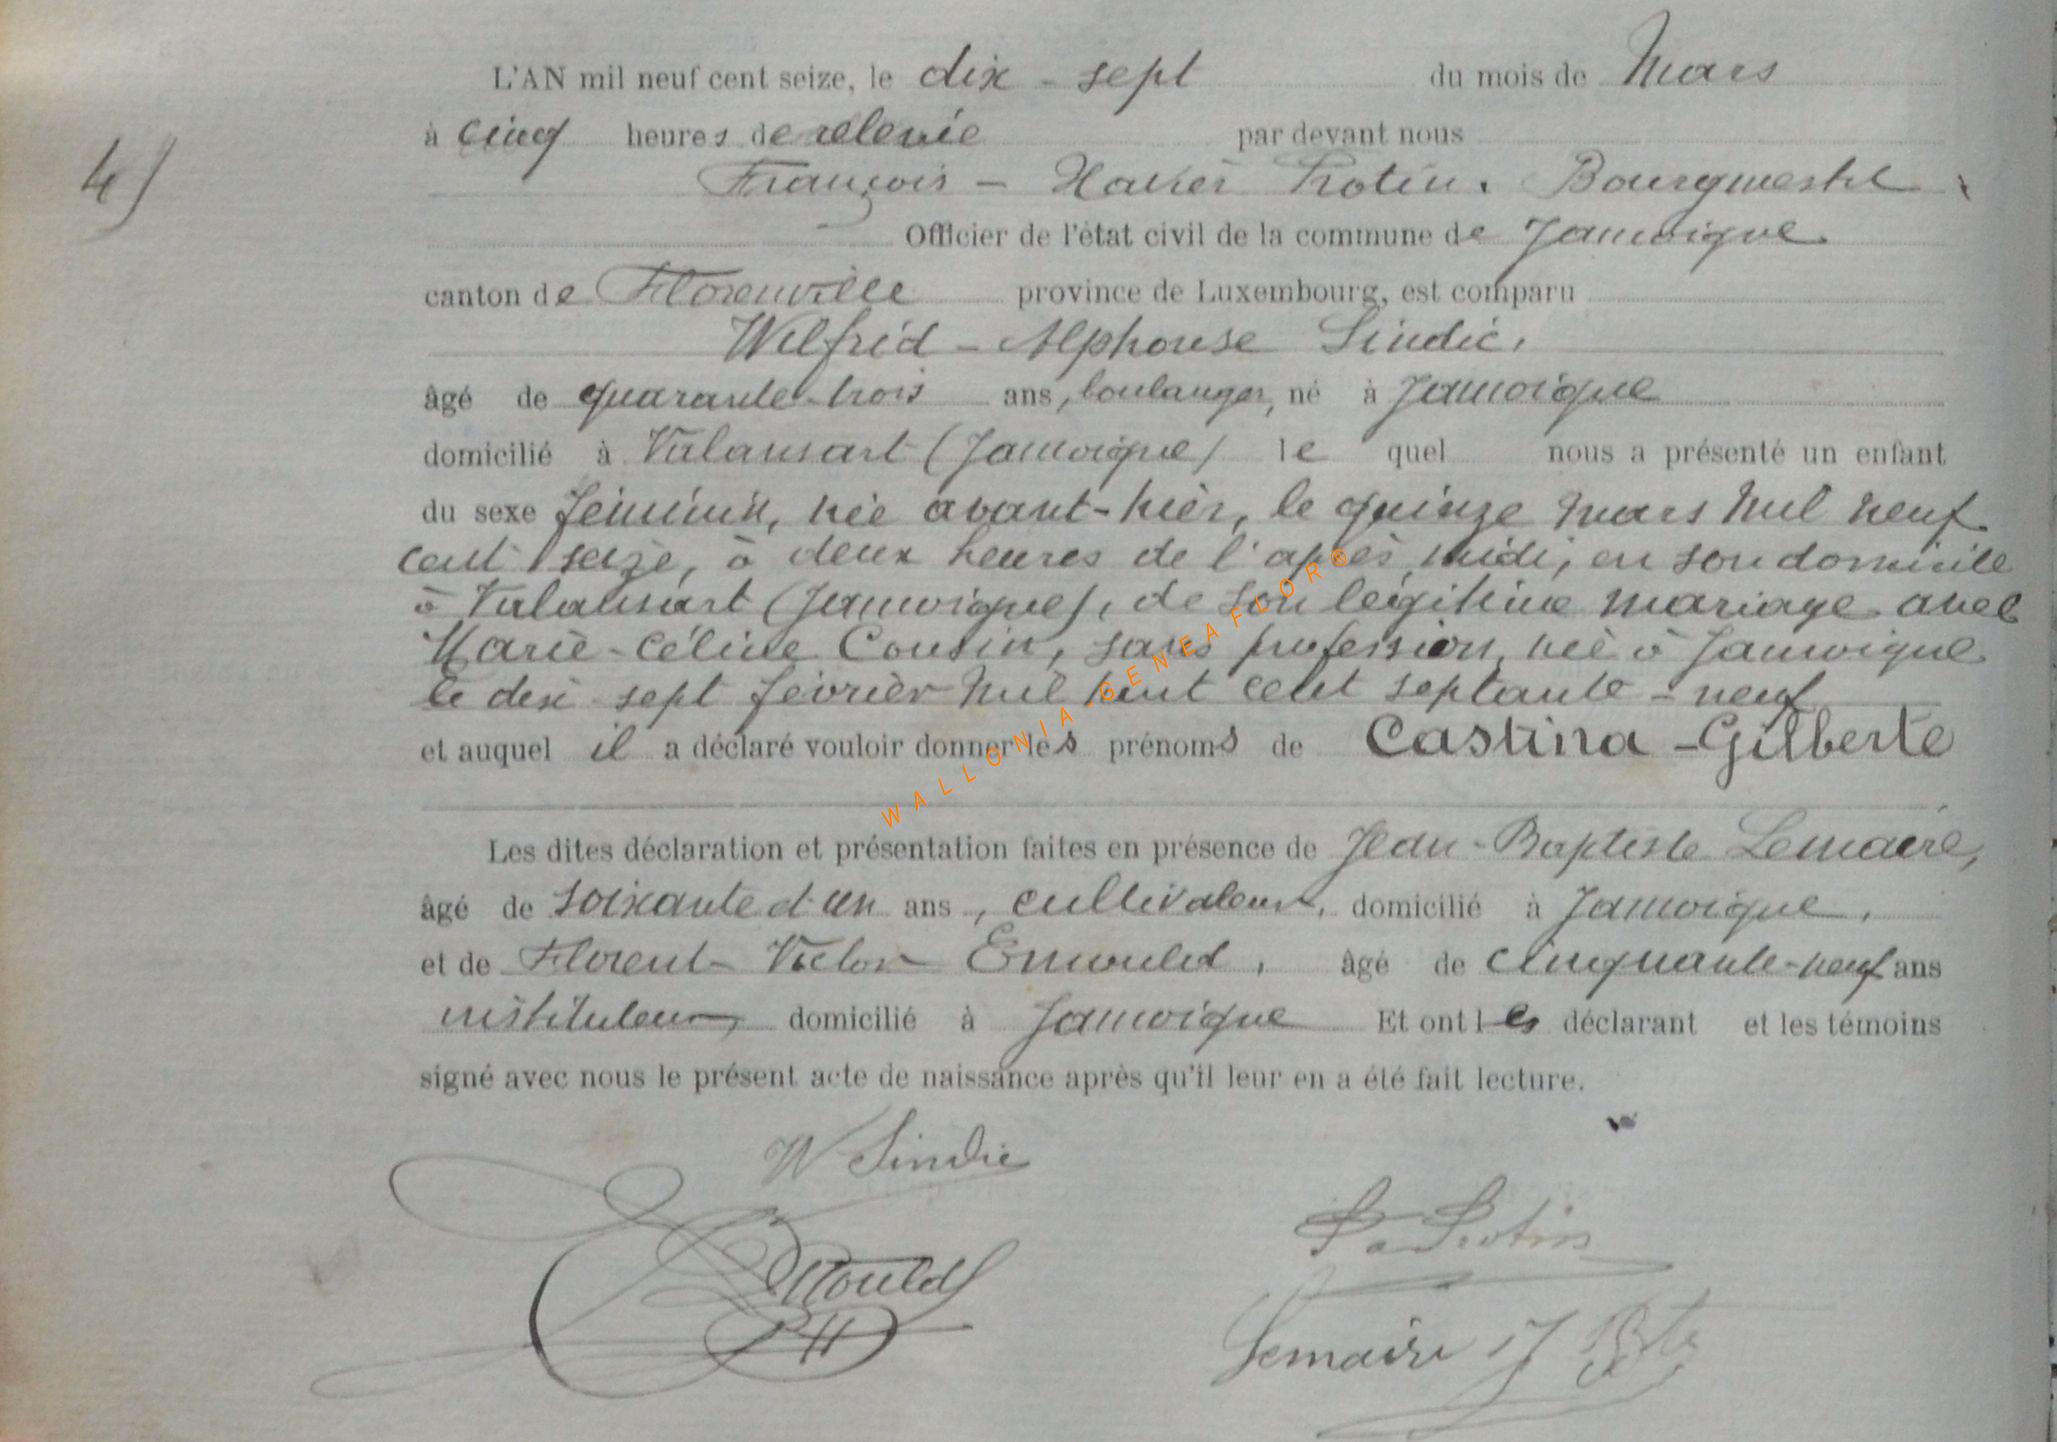 L'AN mil neuf cent seize, le dix-sept du mois de Mars
à cinq heures de relevée par devant nous
4)
François-Xavier Protin, Bourgmestre,
Officier de l'état civil de la commune de Jamoigne
canton de Florenville province de Luxembourg, est comparu
Wilfrid-Alphonse Sindic,
âgé de quarante-trois ans, boulanger, né à Jamoigne
domicilié à Valansart (Jamoigne) le quel nous a présenté un enfant
du sexe féminin, née avant-hier, le quinze mars mil neuf
cent seize, à deux heures de l'après midi, en son domicile
à Valansart (Jamoigne), de son légitime mariage avec
Marie-Céline Cousin, sans profession, née à Jamoigne
le dix sept février mil huit cent septante-neuf
et auquel il a déclaré vouloir donner les prénoms de Castina-Gilberte
WALLONIA-GENEAFLOR®
Les dites déclaration et présentation faites en présence de Jean-Baptiste Lemaire,
âgé de soixante et un ans, cultivateur, domicilié à Jamoigne,
et de Florent-Victor Ernould, âgé de cinquante-neuf ans
instituteur, domicilié à Jamoigne Et ont les déclarant et les témoins
signé avec nous le présent acte de naissance après qu'il leur en a été fait lecture.
W Sindic
Protin
Ernould
Lemaire J Bte